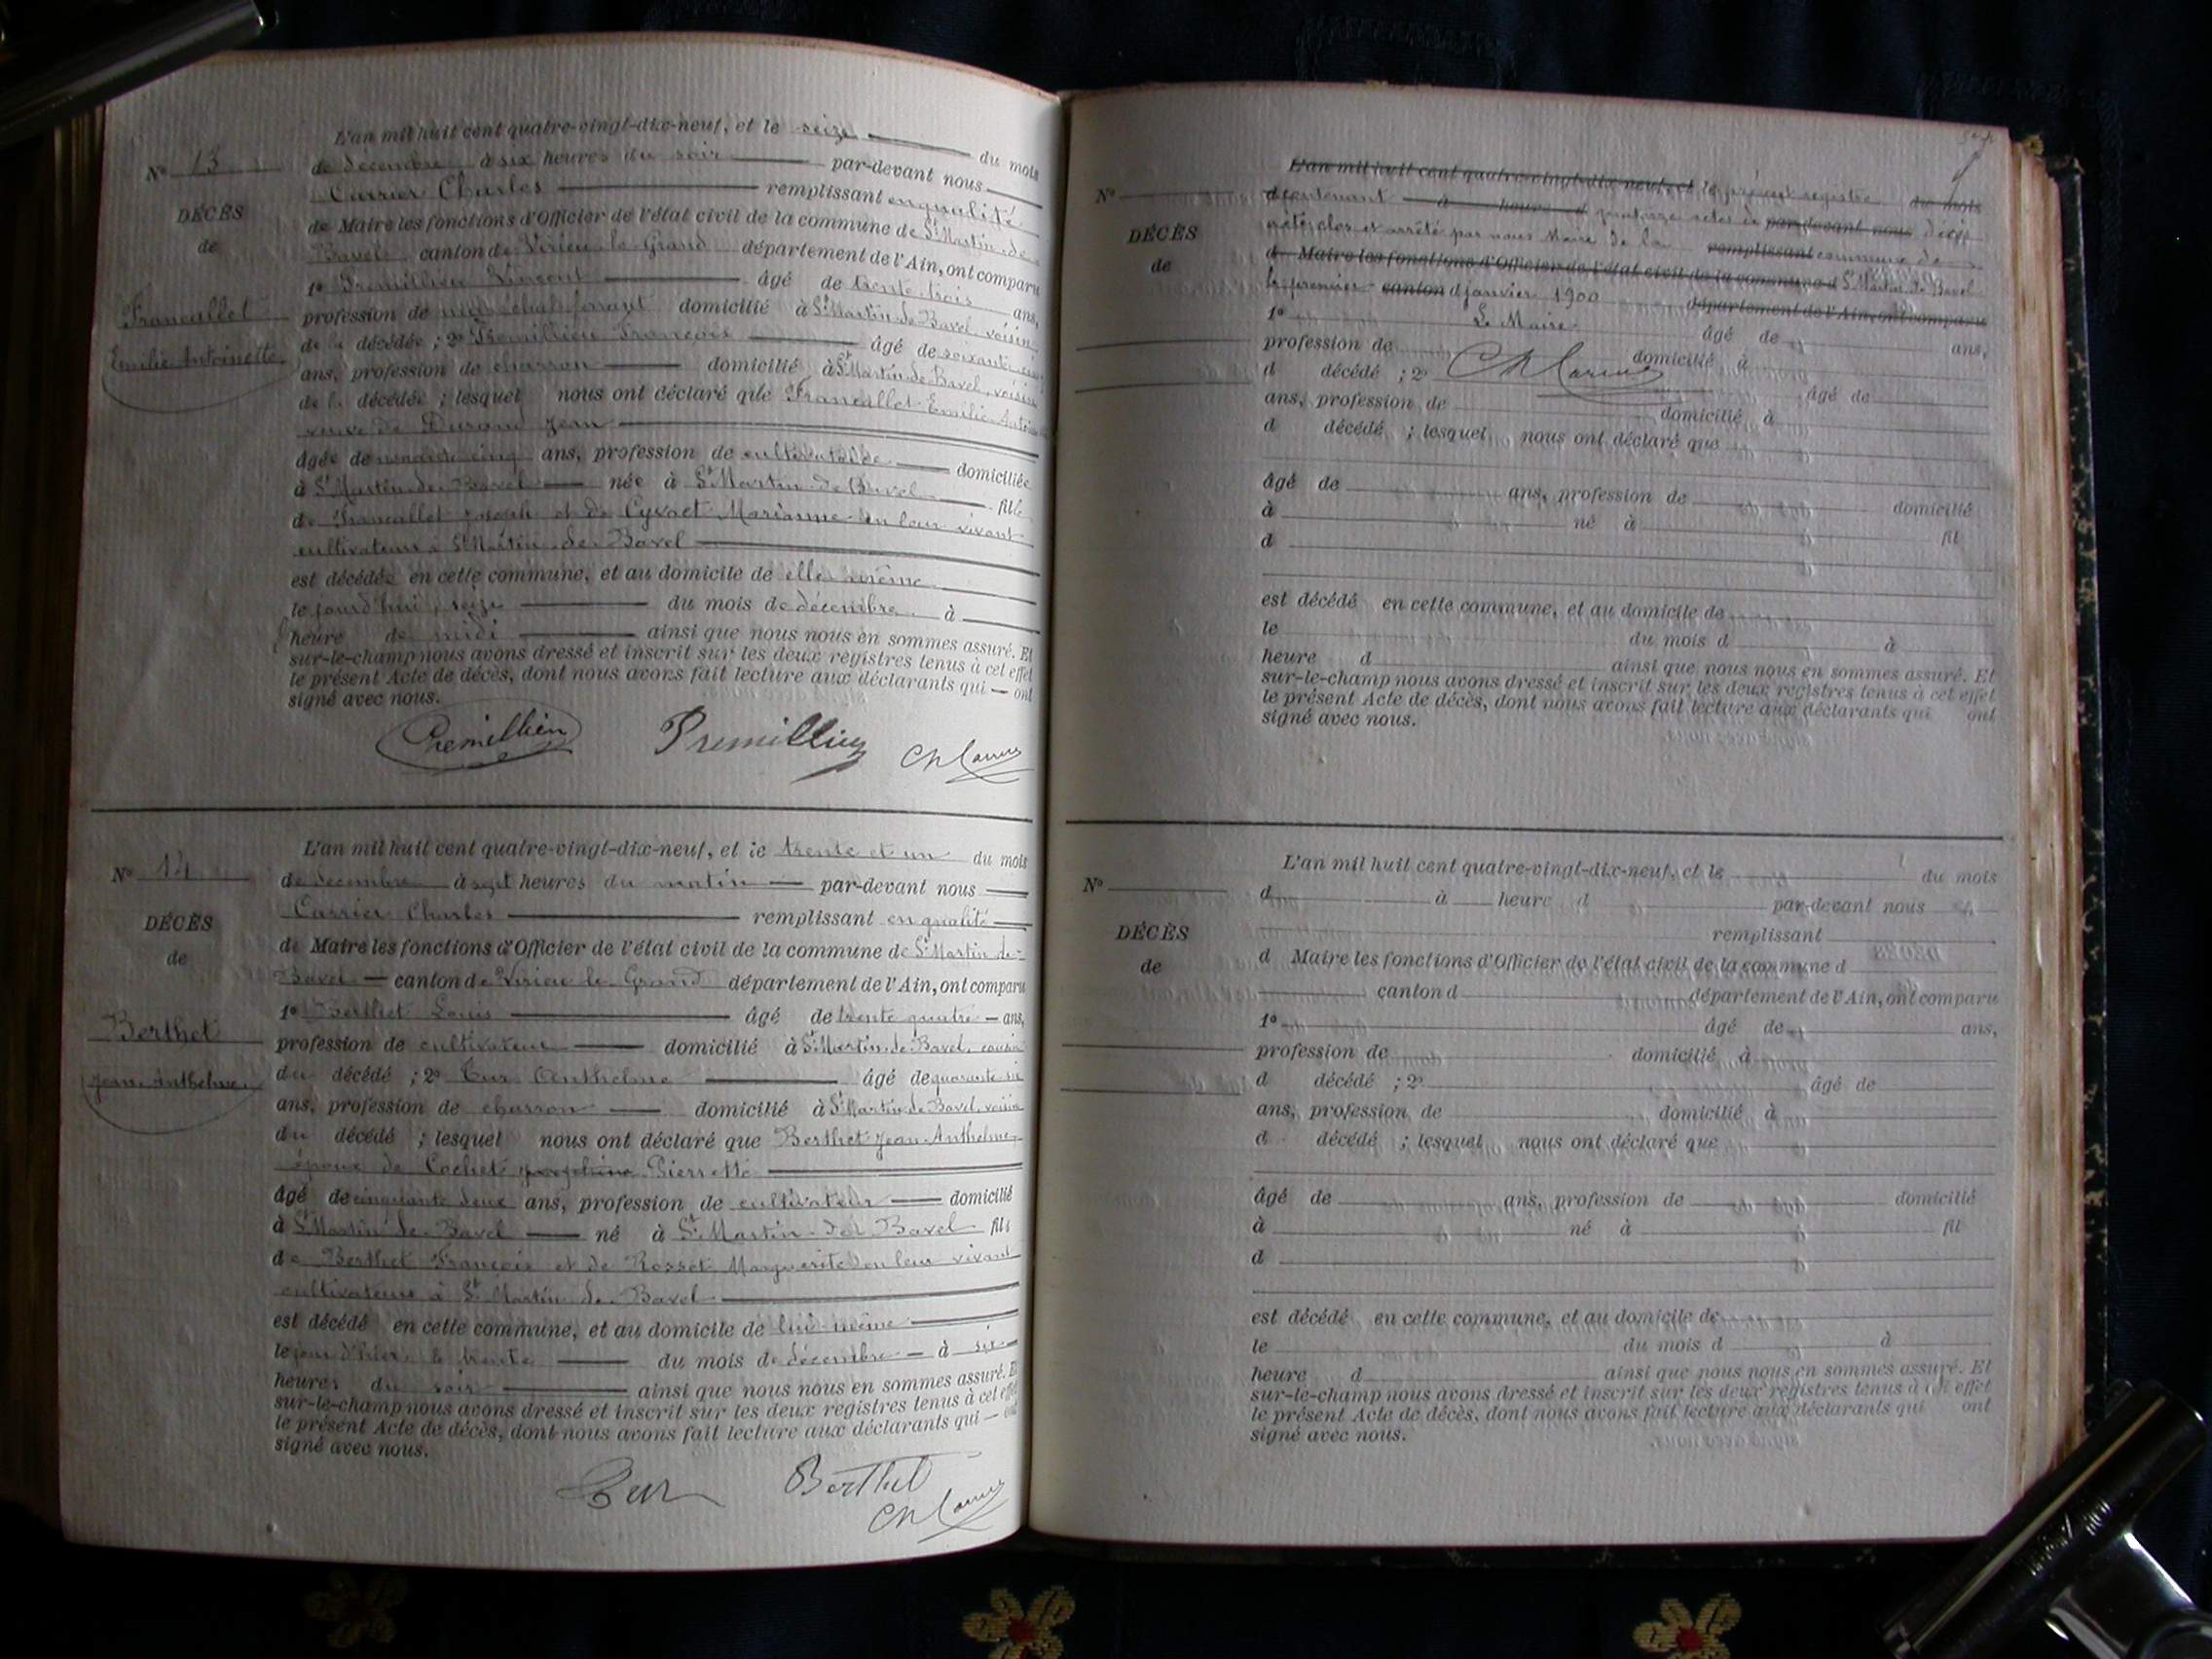 L'an mil huit cent quatre-vingt-dix-neuf, et le seize du mois
N° 13
de decembre à six heures du soir par-devant nous
Carrier Charles remplissant en qualité
DÉCÈS
de Maire les fonctions d'Officier de l'état civil de la commune de St Martin de
de
Bavel canton de Virieu le Grand département de l'Ain, ont comparu
1° Premillieu Vincent âgé de trente trois ans,
Francallet
profession de maréchal ferrant domicilié à St Martin de Bavel, voisin
de la décédée ; 2° Premillieu François âgé de soixante
Emilie Antoinette
ans, profession de charron domicilié à St Martin de Bavel, voisin
de la décédée ; lesquel nous ont déclaré que Francallet Emilie Antoi
veuve de Durand Jean
âgée de cinq ans, profession de cultivatrice domiciliée
à St Martin de Bavel née à St Martin de Bavel fille
de Francallet Joseph et de Cyvoct Marianne en leur vivant
cultivateurs à St Martin de Bavel
est décédée en cette commune, et au domicile de elle même
le jourd'hui seize du mois de décembre à
heure de midi ainsi que nous nous en sommes assuré. Et
sur-le-champ nous avons dressé et inscrit sur les deux registres tenus à cet effet
le présent Acte de décès, dont nous avons fait lecture aux déclarants qui — ont
signé avec nous.
Premillieu Premillieu Ch Carrier
L'an mil huit cent quatre-vingt-dix-neuf, et le trente et un du mois
N° 14
de decembre à sept heures du matin par-devant nous
Carrier Charles remplissant en qualité
DÉCÈS
de Maire les fonctions d'Officier de l'état civil de la commune de St Martin de
de
Bavel — canton de Virieu le Grand département de l'Ain, ont comparu
1° Berthet Louis âgé de trente quatre — ans,
Berthet
profession de cultivateur domicilié à St Martin de Bavel, cousin
Jean Anthelme
du décédé ; 2° Cur Anthelme âgé de quarante six
ans, profession de charron domicilié à St Martin de Bavel, voisin
du décédé ; lesquel nous ont déclaré que Berthet Jean Anthelme
époux de Cochet Josephine Pierrette
âgé de cinquante deux ans, profession de cultivateur domicilié
à St Martin de Bavel né à St Martin de Bavel fils
de Berthet François et de Rosset Marguerite en leur vivant
cultivateurs à St Martin de Bavel
est décédé en cette commune, et au domicile de lui même
le jour d'hier, le trente du mois de décembre — à six
heures du soir ainsi que nous nous en sommes assuré. Et
sur-le-champ nous avons dressé et inscrit sur les deux registres tenus à cet effet
le présent Acte de décès, dont nous avons fait lecture aux déclarants qui — ont
signé avec nous.
Cur Berthet
Ch Carrier
L'an mil huit cent quatre-vingt-dix-neuf, et le présent registre du mois
N°
contenant à heure d quatorze actes de par-devant nous décès
DÉCÈS
clos et arrêté par nous Maire de la remplissant commune de
de
d Maire les fonctions d'Officier de l'état civil de la commune d St Martin de Bavel
le premier canton d janvier 1900 département de l'Ain, ont comparu
1° Le Maire âgé de ans,
profession de domicilié à
Ch Carrier
d décédé ; 2° âgé de
ans, profession de domicilié à
d décédé ; lesquel nous ont déclaré que
âgé de ans, profession de domicilié
à né à fil
d
est décédé en cette commune, et au domicile de
le du mois d à
heure d ainsi que nous nous en sommes assuré. Et
sur-le-champ nous avons dressé et inscrit sur les deux registres tenus à cet effet
le présent Acte de décès, dont nous avons fait lecture aux déclarants qui ont
signé avec nous.
L'an mil huit cent quatre-vingt-dix-neuf, et le du mois
N°
d à heure d par-devant nous
remplissant
DÉCÈS
d Maire les fonctions d'Officier de l'état civil de la commune d
de
canton d département de l'Ain, ont comparu
1° âgé de ans,
profession de domicilié à
d décédé ; 2° âgé de
ans, profession de domicilié à
d décédé ; lesquel nous ont déclaré que
âgé de ans, profession de domicilié
à né à fil
d
est décédé en cette commune, et au domicile de
le du mois d à
heure d ainsi que nous nous en sommes assuré. Et
sur-le-champ nous avons dressé et inscrit sur les deux registres tenus à cet effet
le présent Acte de décès, dont nous avons fait lecture aux déclarants qui ont
signé avec nous.